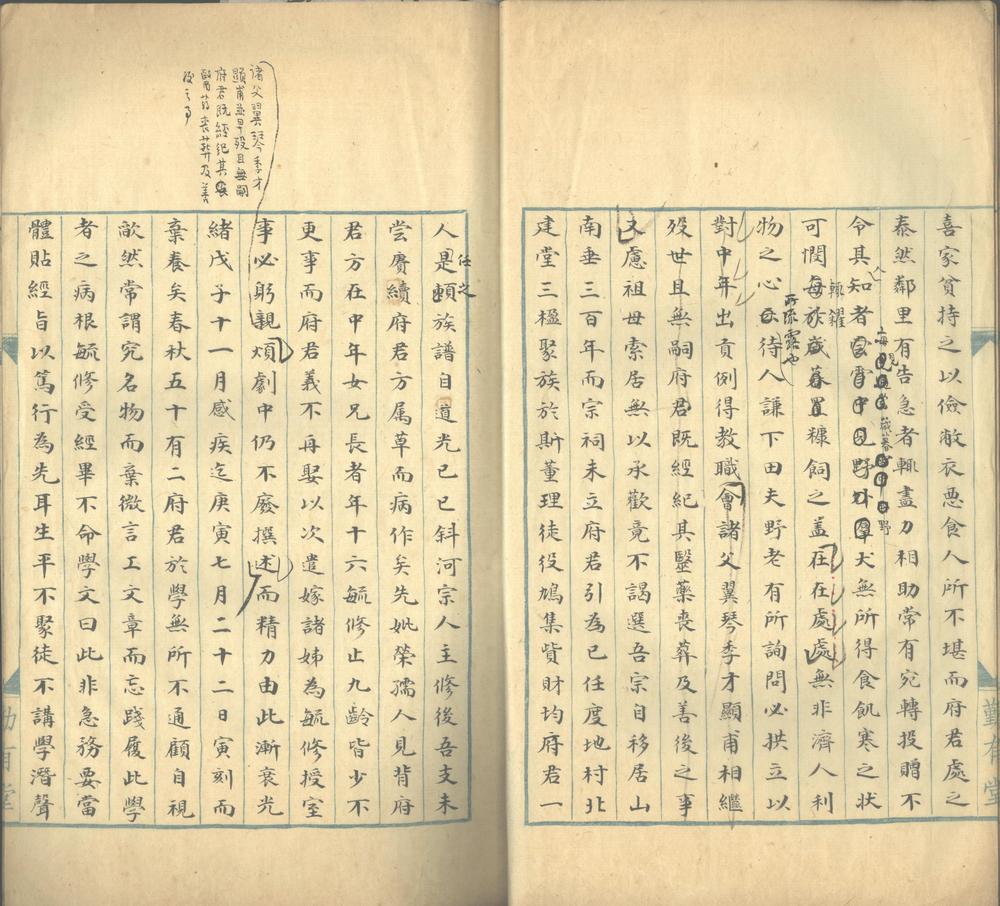 喜家貧持之以儉敝衣惡食人所不堪而府君處之
泰然鄰里有告急者輒盡力相助常有宛轉投贈不
令其知者野外犬無所得食飢寒之狀
每見歲暮野
可閔置糠飼之蓋在在處處無非濟人利
輒糴
物之心待人謙下田夫野老有所詢問必拱立以
所流露也
對中年出貢例得教職會諸父翼琴季才顯甫相繼
歿世且無嗣府君既經紀其醫藥喪葬及善後之事
又慮祖母索居無以承歡竟不謁選吾宗自移居山
南垂三百年而宗祠未立府君引為己任度地村北
建堂三楹聚族於斯董理徒役鳩集貲財均府君一
諸父翼琴季才
顯甫並早歿且無嗣
府君既經紀其
醫葯喪葬及善
後之事
人是賴族譜自道光己巳斜河宗人主修後吾支未
任之
嘗賡續府君方属草而病作矣先妣榮孺人見背府
君方在中年女兄長者年十六毓修止九齡皆少不
更事而府君義不再娶以次遣嫁諸姊為毓修授室
事必躬親煩劇中仍不廢撰述而精力由此漸衰光
緒戊子十一月感疾迄庚寅七月二十二日寅刻而
棄養矣春秋五十有二府君於學無所不通顧自視
歉然常謂究名物而棄微言工文章而忘踐履此學
者之病根毓修受經畢不命學文曰此非急務要當
體貼經旨以篤行為先耳生平不聚徒不講學潛聲